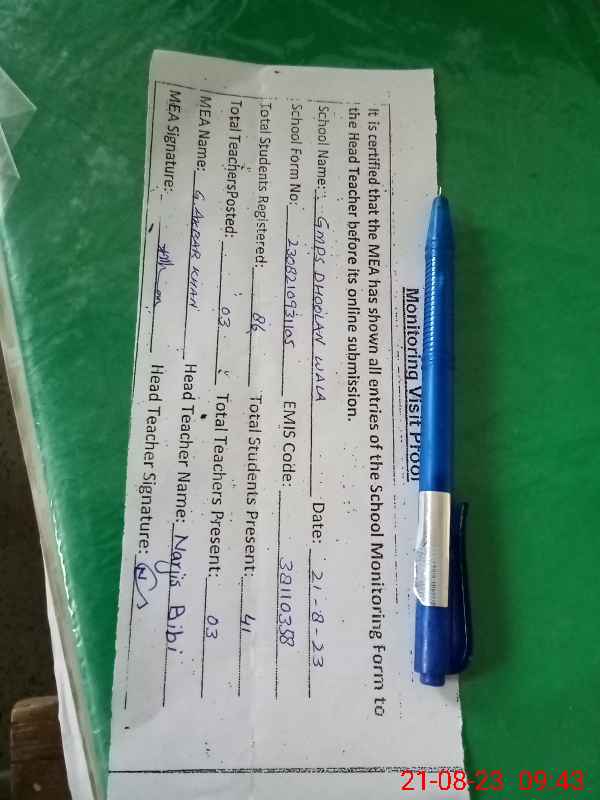 Monitoring Visit Proof
It is certified that the MEA has shown all entries of the School Monitoring Form to
the Head Teacher before its online submission.
School Name: GMPS DHOOLAN WALA Date: 21-8-23
School Form No: 2308210931105 EMIS Code: 38110358
Total Students Registered: 86 Total Students Present: 41
Total TeachersPosted: 03 Total Teachers Present: 03
MEA Name: G AKBAR KHAN Head Teacher Name: Narjis Bibi
MEA Signature: Head Teacher Signature:
21-08-23 09:43